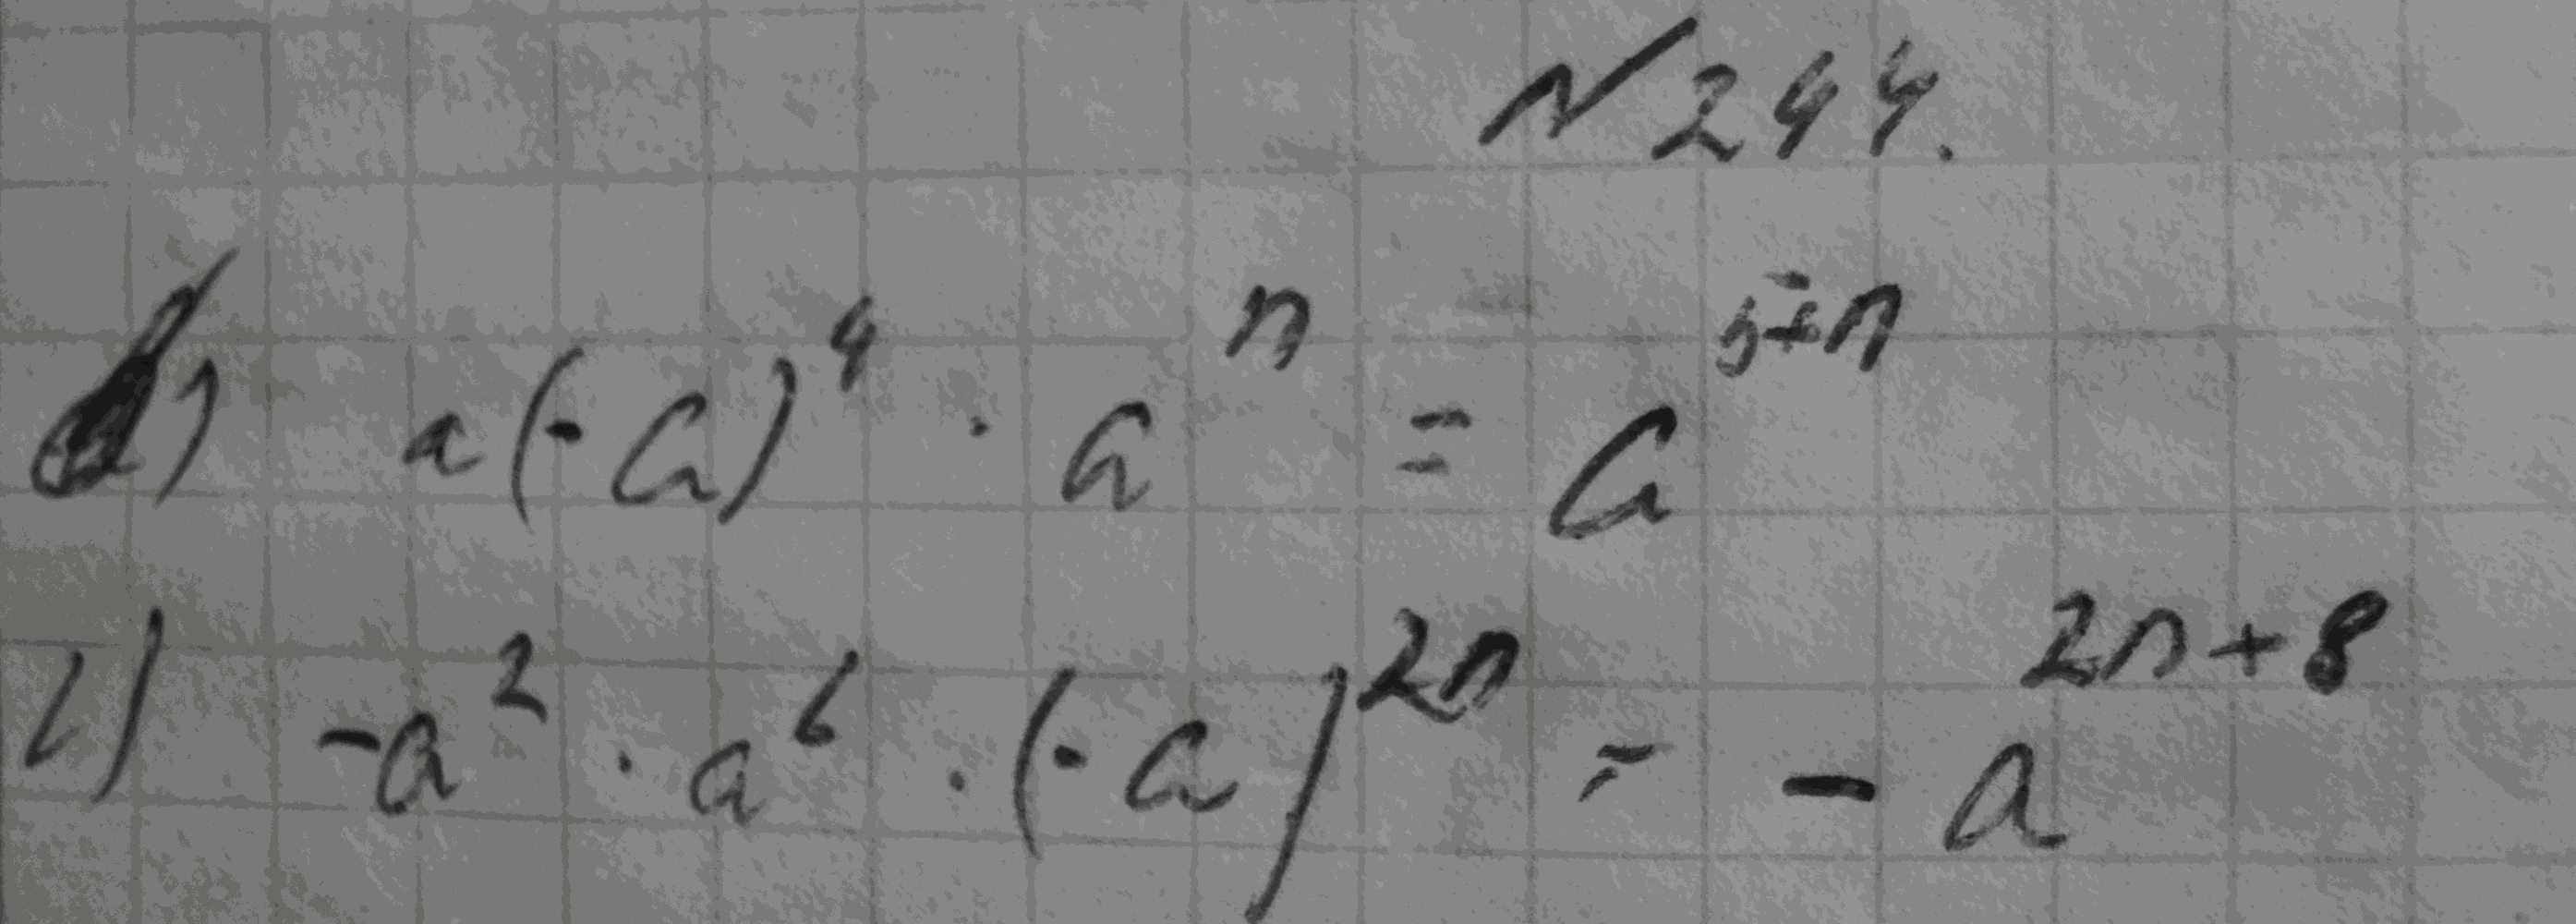 N 244.
a) a(-a)⁴ · aⁿ = a⁵⁺ⁿ
2) -a² · a⁶ · (-a)²ⁿ = - a²ⁿ⁺⁸